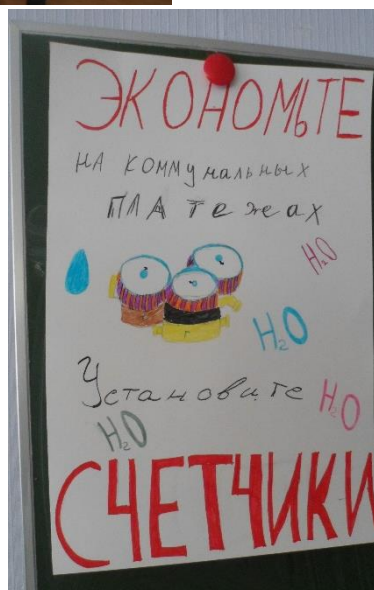 ЭКОНОМЬТЕ
НА КОММУНАЛЬНЫХ
ПЛАТЕЖАХ
H₂O
H₂O
Установите
H₂O
H₂O
СЧЕТЧИКИ